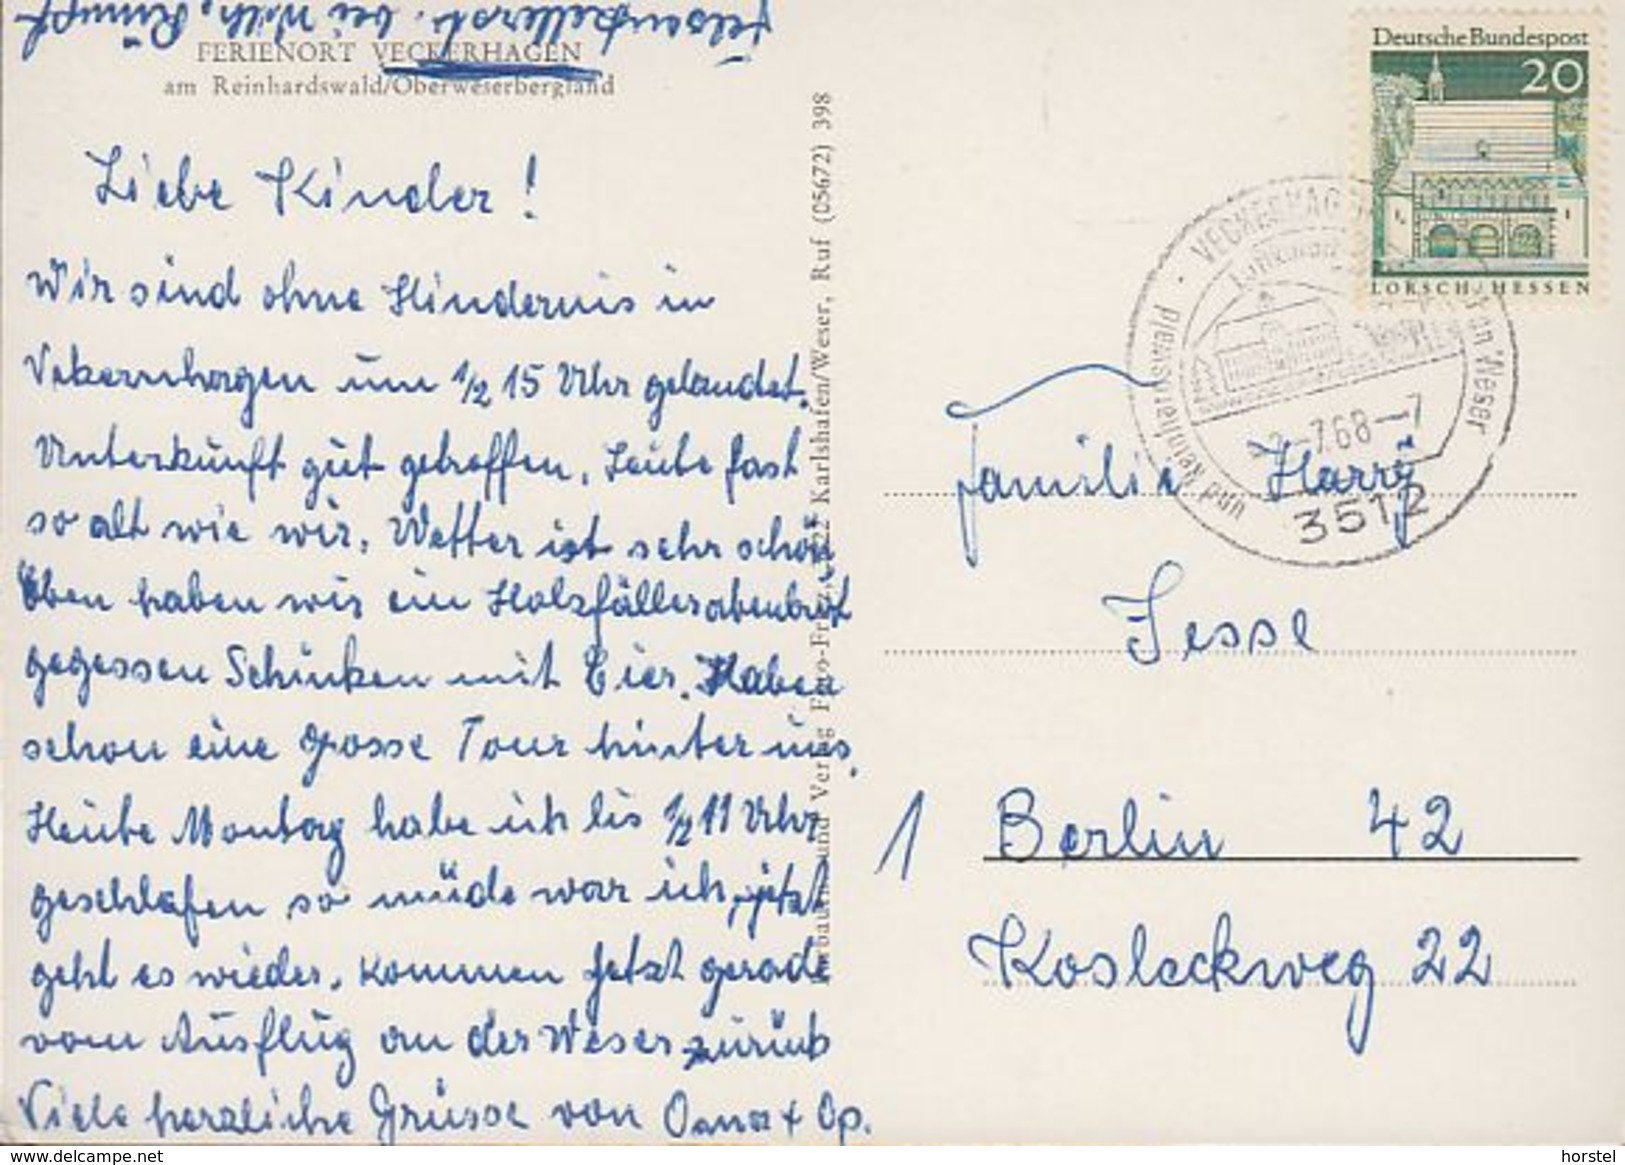 Felsenkellerstr. bei Wilh. Rümpf
FERIENORT VECKERHAGEN
am Reinhardswald/Oberweserbergland
Liebe Kinder!
Wir sind ohne Hindernis in
Vekernhagen um 1/2 15 Uhr gelandet.
Unterkunft gut getroffen, Leute fast
so alt wie wir. Wetter ist sehr schön
Eben haben wir ein Holzfällerabenbrot
gegessen Schinken mit Eier. Haben
schon eine grosse Tour hinter uns.
Heute Montag habe ich bis 1/2 11 Uhr
geschlafen so müde war ich, jetzt
geht es wieder. Kommen jetzt gerade
vom Ausflug an der Weser zurück
Viele herzliche Grüsse von Oma + Op.
Verlag Karlshafen/Weser, Ruf (05672) 398
Deutsche Bundespost
20
LORSCH/HESSEN
VECKERHAGEN
Luftkurort
und Reinhardswald
-7.68-7
3512
Familie Harry
Jesse
1 Berlin 42
Kosleckweg 22
www.delcampe.net
horstel